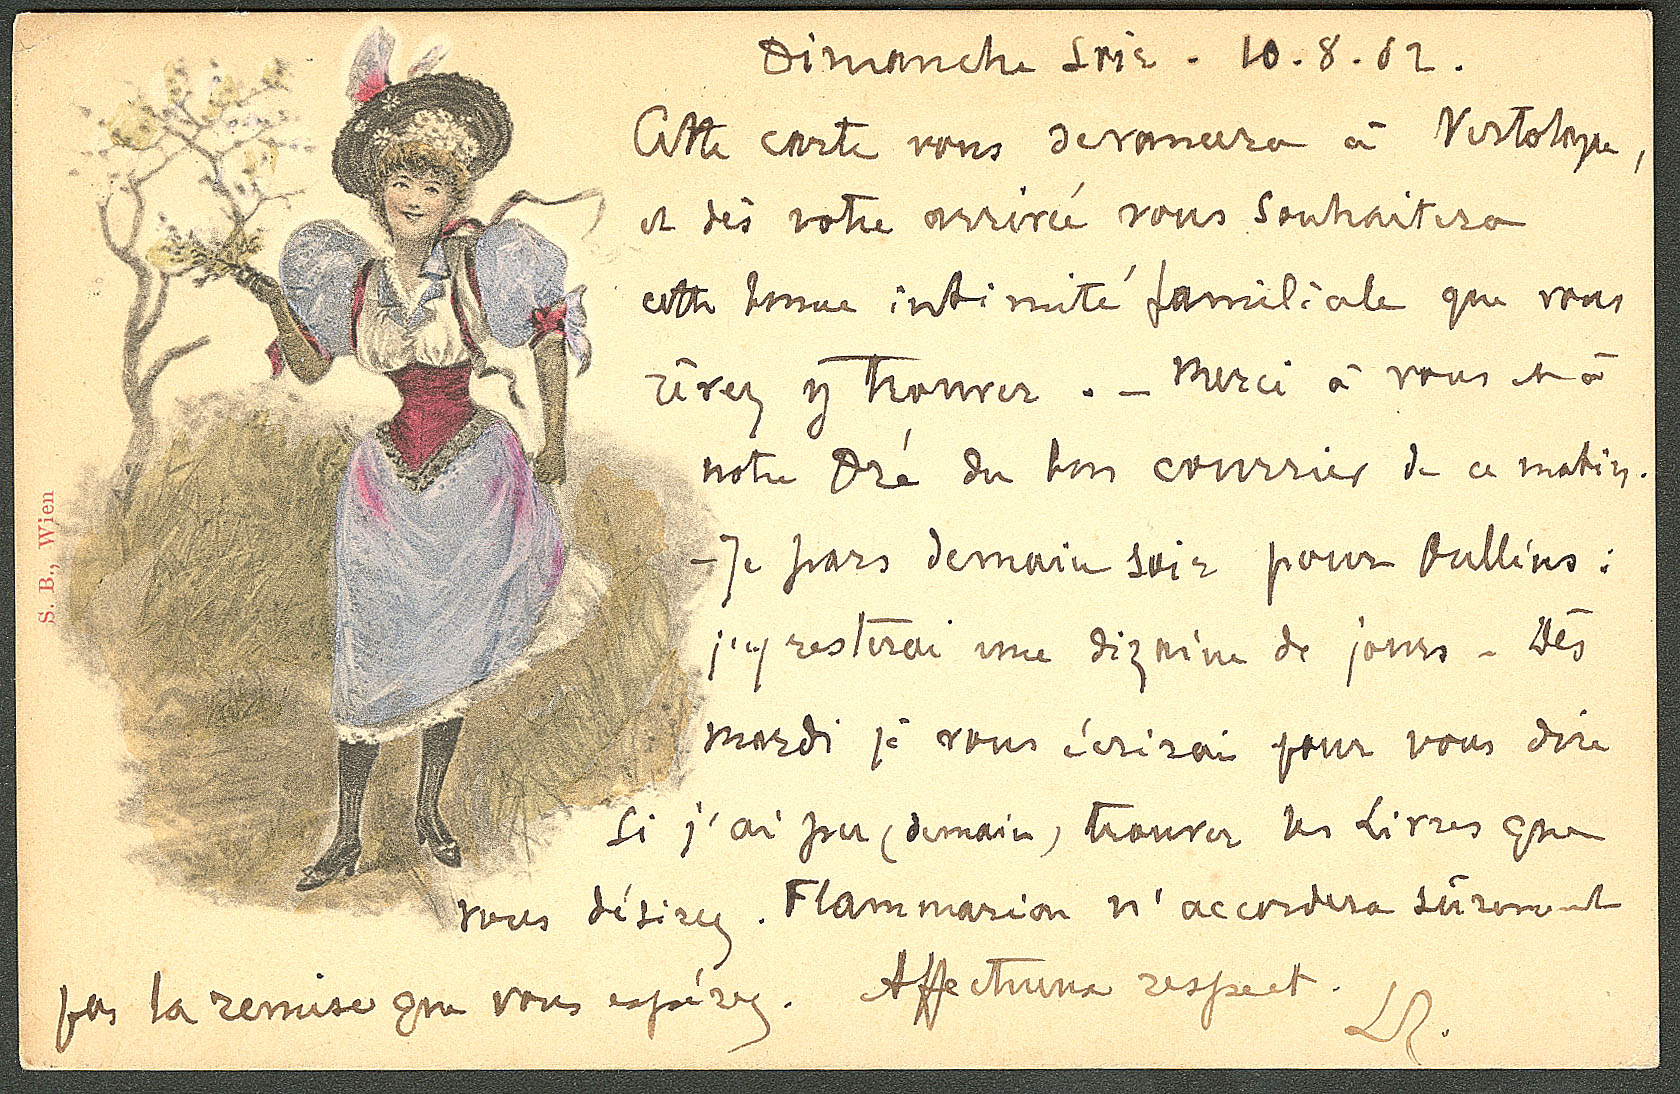 Dimanche soir. 10.8.02.
Cette carte vous devancera à
et dès votre arrivée vous souhaitera
cette bonne intimité familiale que vous
rêvez y trouver. — Merci à vous et à
notre Dré du bon courrier de ce matin.
- Je pars demain soir pour Oullins :
j'y resterai une dizaine de jours - Dès
mardi je vous écrirai pour vous dire
si j'ai pu (demain) trouver les livres que
vous désirez. Flammarion n'accordera sûrement
pas la remise que vous espérez. Affectueux respect.
LR.
S. B., Wien